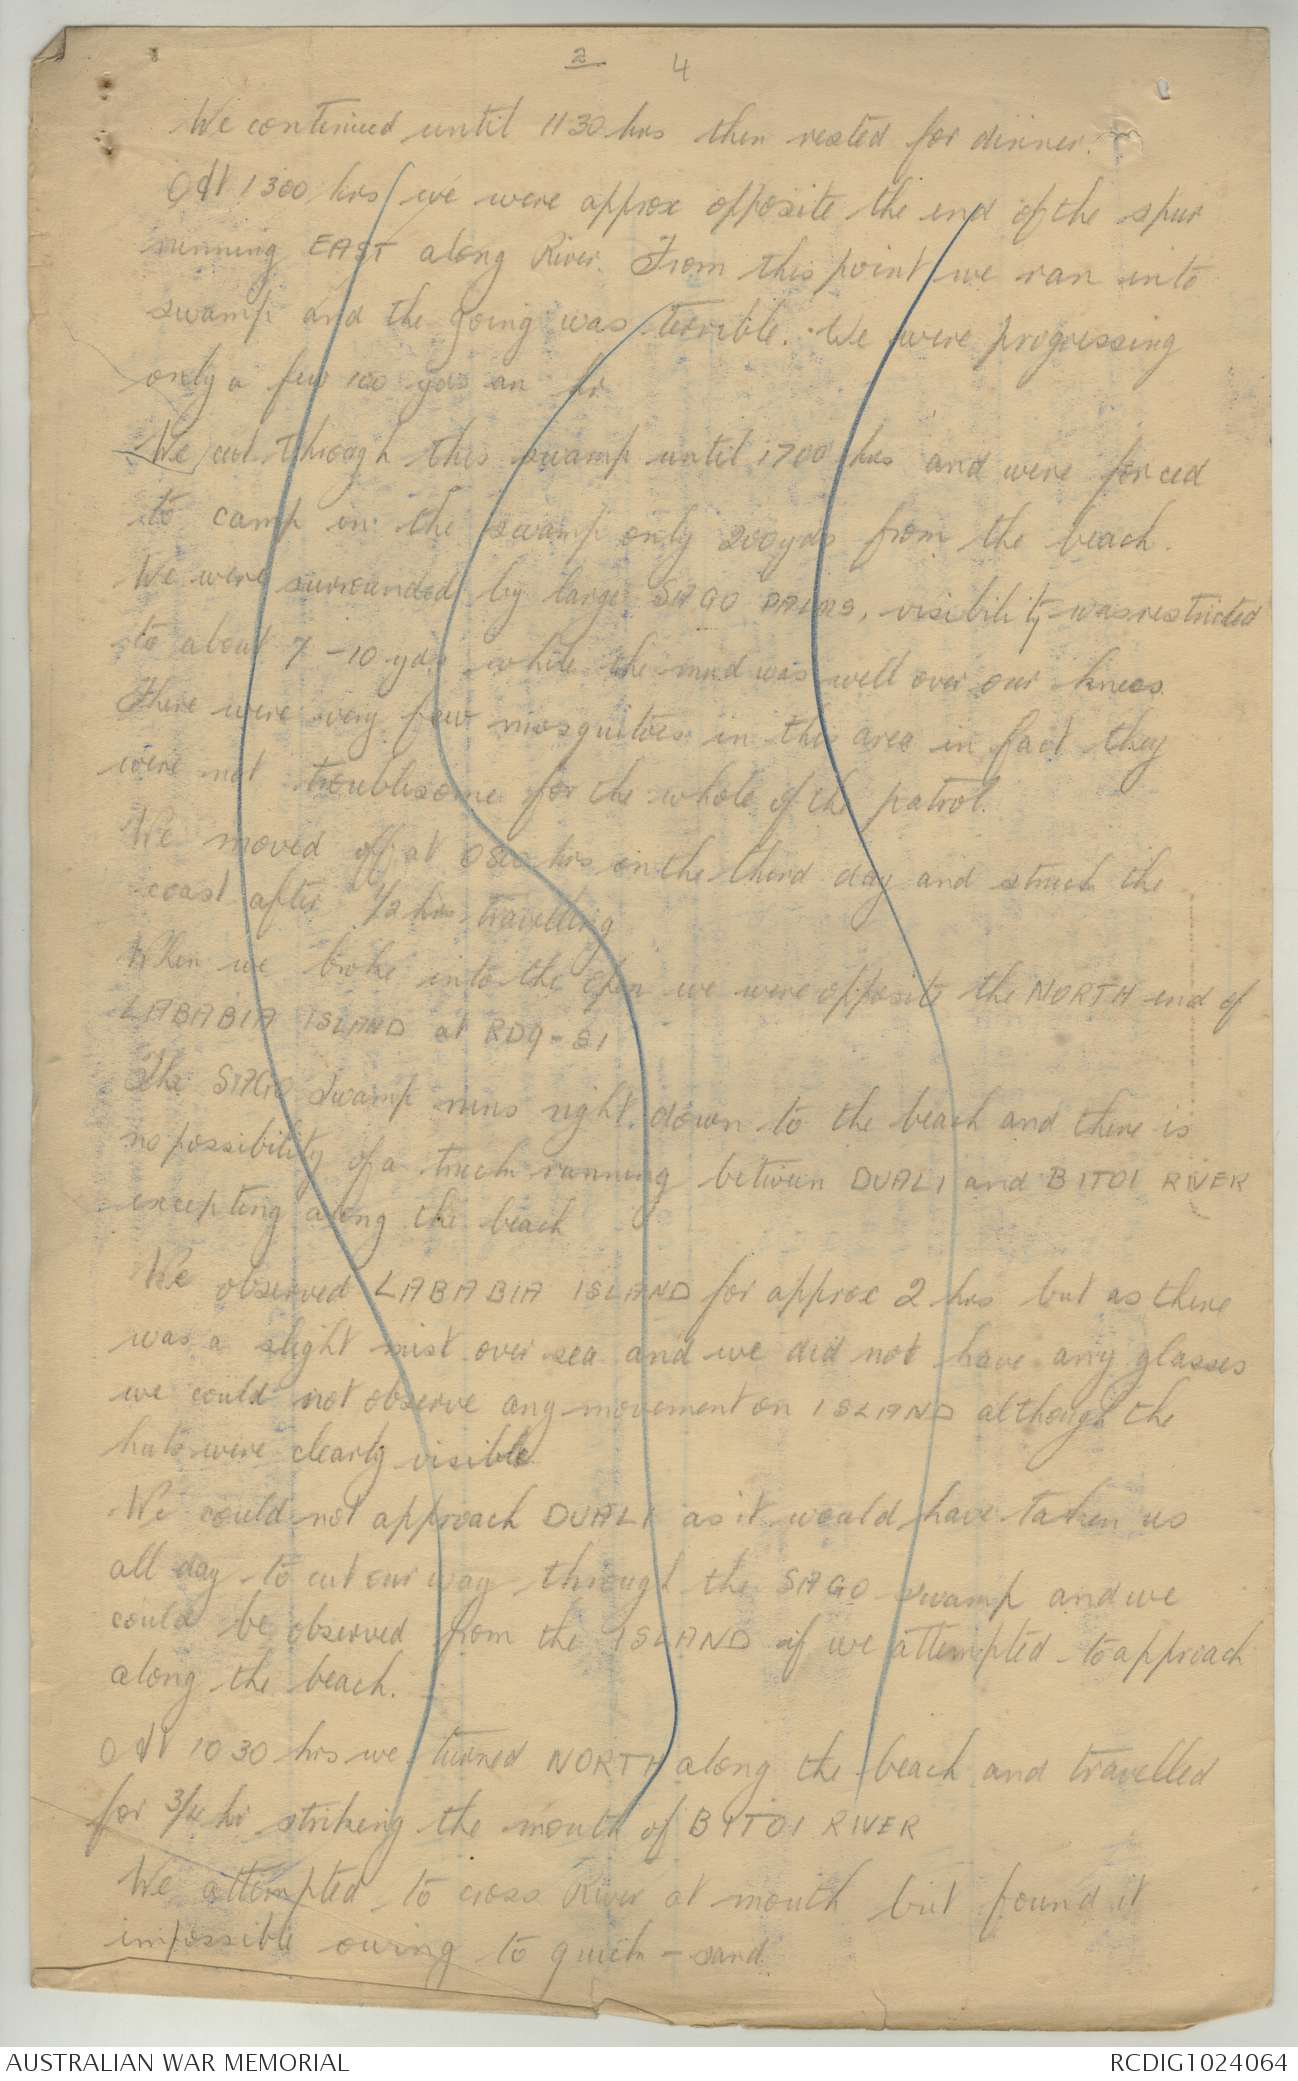 2 4
We continued until 1130 hrs then rested for dinner.
At 1300 hrs we were approx opposite the end of the spur
running EAST along River. From this point we ran into
swamp and the going was terrible. We were progressing
only a few 100 yds an hr
We cut through this swamp until 1700 hrs and were forced
to camp in the swamp only 200 yds from the beach.
We were surrounded by large SAGO PALMS, visibility was restricted
to about 7-10 yds while the mud was well over our knees
There were very few mosquitoes in this area in fact they
were not troublesome for the whole of the patrol.
We moved off at 0800 hrs on the third day and struck the
coast after 1/2 hrs travelling
When we broke into the open we were opposite the NORTH end of
LABABIA ISLAND at RD9-51
The SAGO swamp runs right down to the beach and there is
no possibility of a track running between DUALI and BITOI RIVER
excepting along the beach
We observed LABABIA ISLAND for approx 2 hrs but as there
was a slight mist over sea and we did not have any glasses
we could not observe any movement on ISLAND although the
huts were clearly visible
We could not approach DUALI as it would have taken us
all day to cut our way through the SAGO swamp and we
could be observed from the ISLAND if we attempted to approach
along the beach.
At 1030 hrs we turned NORTH along the beach and travelled
for 3/4 hr striking the mouth of BITOI RIVER
We attempted to cross River at mouth but found it
impossible owing to quick-sand
AUSTRALIAN WAR MEMORIAL
RCDIG1024064